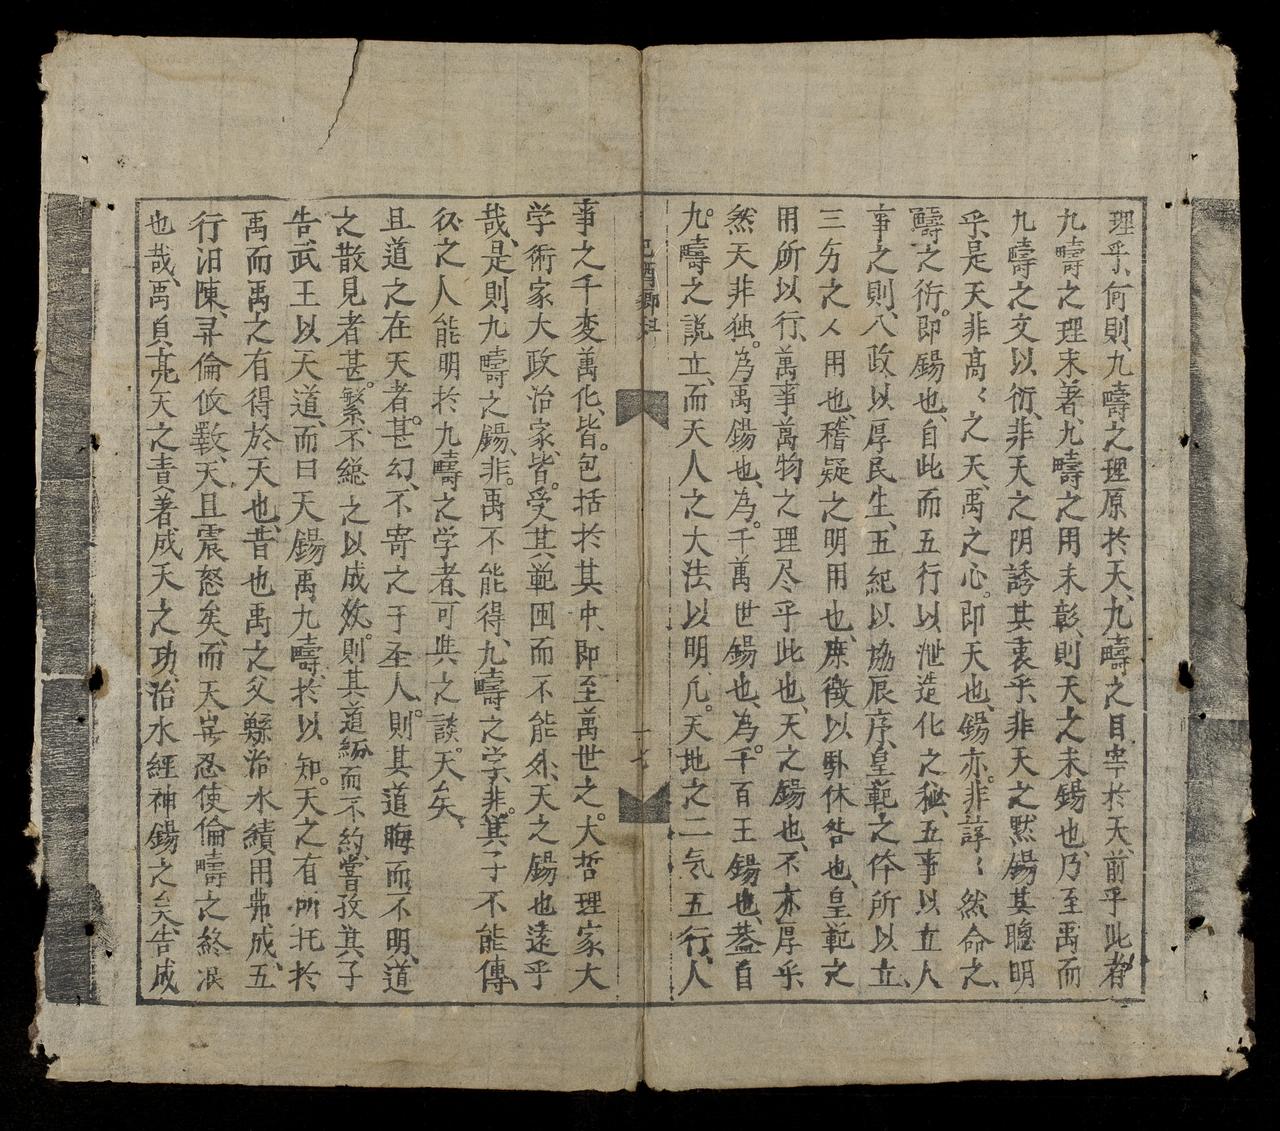 理乎、何則、九疇之理原於天、九疇之目宰於天、前乎此者
九疇之理未著、九疇之用未彰、則天之未錫也、乃至禹而
九疇之文以衍、非天之阴誘其衷乎、非天之黙錫其聰明
乎、是天非高〻之天、禹之心。即天也、錫亦。非諄〻然命之、
疇之衍。即錫也、自此而五行以泄造化之秘、五事以立人
事之則、八政以厚民生、五紀以協辰序、皇範之体所以立、
三分之人用也、稽疑之明用也、庶徵以卧休咎也、皇範之
用所以行、萬事萬物之理尽乎此也、天之錫也、不亦厚乎
然天非独。為禹錫也、為。千萬世錫也、為。千百王錫也、盖自
九。疇之説立、而天人之大法以明、凡。天地之二气五行、人
己酉鄉科
十七
事之千変萬化、皆。包括於其中、即至萬世之。大哲理家、大
学術家、大政治家、皆。受其範囲而不能外、天之錫也遠乎
哉、是則九疇之錫、非。禹不能得、九疇之学、非。箕子不能傳、
後之人能明於九疇之学者、可與之談。天矣、
且道之在天者。甚幻、不寄之于圣人。則其道晦而不明、道
之散見者甚。繁、不総之以成效。則其道紊而不約、嘗孜其子
告武王以天道、而曰天錫禹九疇、於以知。天之有所托於
禹、而禹之有得於天也、昔也禹之父鯀治水績用弗成、五
行汨陳、彛倫攸斁、天且震怒矣、而天豈忍使倫疇之終泯
也哉、禹負亮天之責、著成天之功、治水經神錫之矣、告成